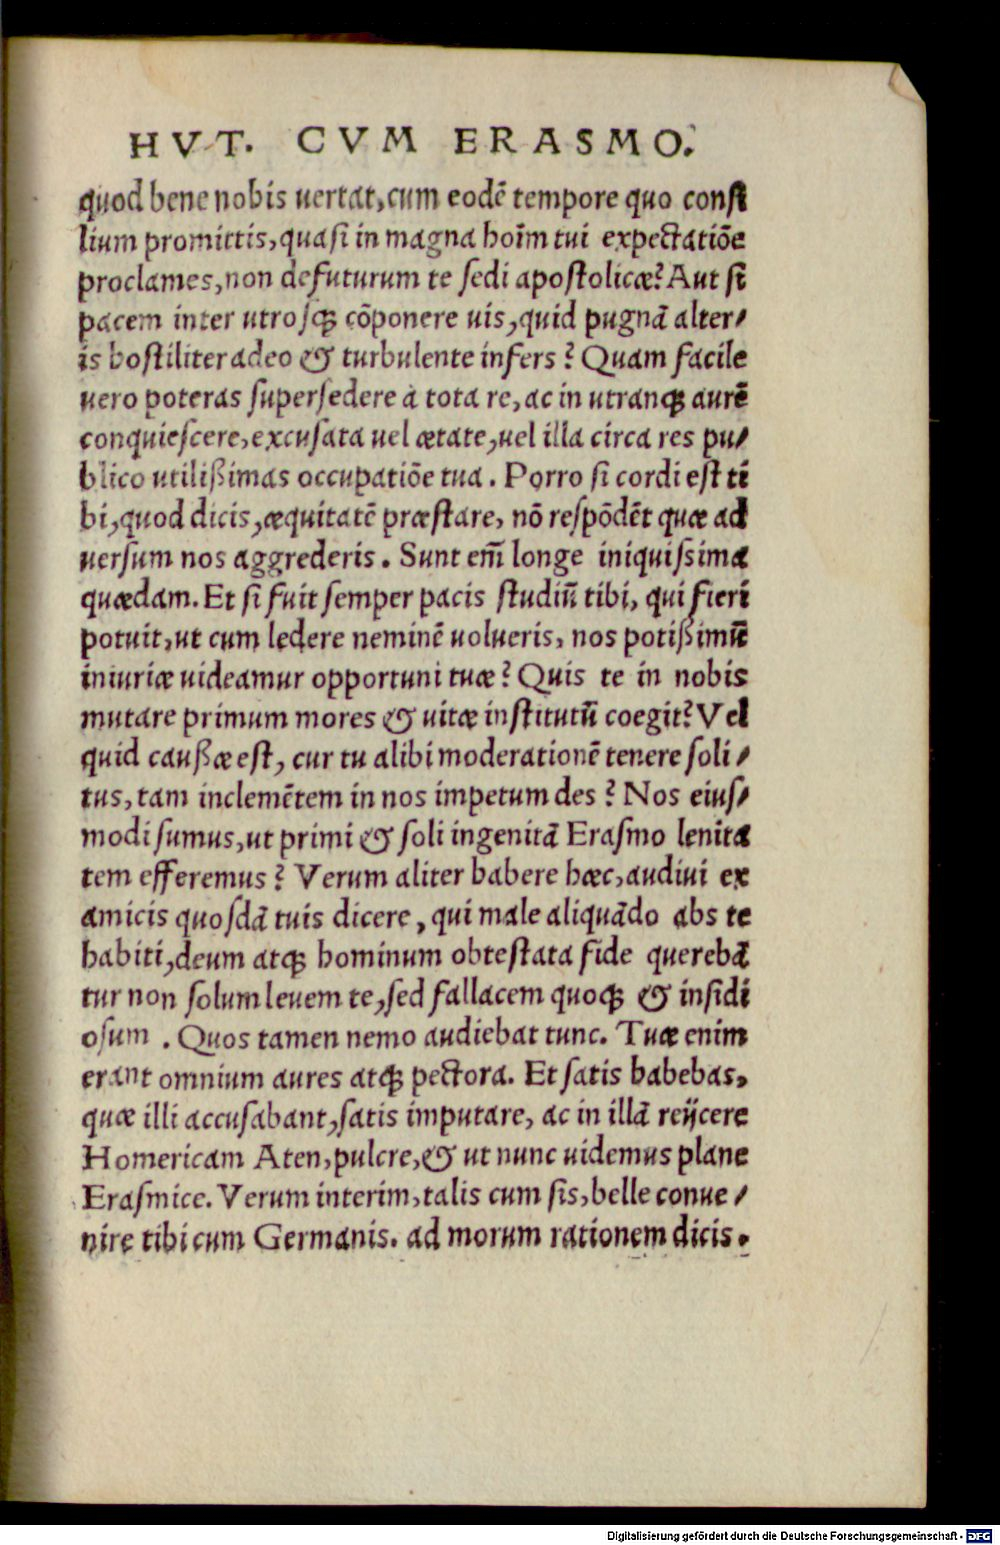 HVT. CVM ERASMO.
quod bene nobis uertat, cum eodē tempore quo consi
lium promittis, quasi in magna hoīm tui expectatiōe
proclames, non defuturum te sedi apostolicæ? Aut si
pacem inter utrosqꝫ cōponere uis, quid pugnā alter/
is hostiliter adeo & turbulente infers? Quam facile
uero poteras supersedere à tota re, ac in utranqꝫ aurē
conquiescere, excusata uel ætate, uel illa circa res pu/
blico utilißimas occupatiōe tua. Porro si cordi est ti
bi, quod dicis, æquitatē præstare, nō respōdēt quæ ad
uersum nos aggrederis. Sunt em̄ longe iniquißima
quædam. Et si fuit semper pacis studiū tibi, qui fieri
potuit, ut cum lędere neminē uolueris, nos potißimū
iniuriæ uideamur opportuni tuæ? Quis te in nobis
mutare primum mores & uitæ institutū coegit? Vel
quid caußæ est, cur tu alibi moderationē tenere soli/
tus, tam inclemētem in nos impetum des? Nos eius/
modi sumus, ut primi & soli ingenitā Erasmo lenita
tem efferemus? Verum aliter habere hæc, audiui ex
amicis quosdā tuis dicere, qui male aliquādo abs te
habiti, deum atqꝫ hominum obtestata fide querebā
tur non solum leuem te, sed fallacem quoqꝫ & insidi
osum. Quos tamen nemo audiebat tunc. Tuæ enim
erant omnium aures atqꝫ pectora. Et satis habebas,
quæ illi accusabant, satis imputare, ac in illā reijcere
Homericam Aten, pulcre, & ut nunc uidemus plane
Erasmice. Verum interim, talis cum sis, belle conue/
nire tibi cum Germanis. ad morum rationem dicis.
Digitalisierung gefördert durch die Deutsche Forschungsgemeinschaft - DFG